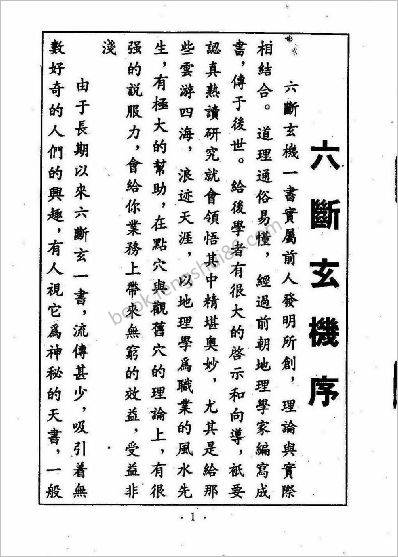 六斷玄機序
六斷玄機一書實屬前人發明所創，理論與實際
相結合。道理通俗易懂，經過前朝地理學家編寫成
書，傳于後世。給後學者有很大的啓示和向導，衹要
認真熟讀研究就會領悟其中精堪奧妙，尤其是給那
些雲游四海，浪迹天涯，以地理學爲職業的風水先
生，有極大的幫助，在點穴與觀舊穴的理論上，有很
强的説服力，會給你業務上帶來無窮的效益，受益非
淺
由于長期以來六斷玄一書，流傳甚少，吸引着無
數好奇的人們的興趣，有人視它爲神秘的天書，一般
·1·